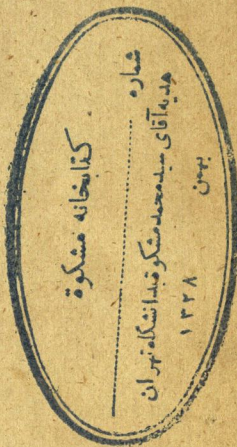 كتابخانه مشكوة
شماره
هديه آقاى سيد محمد مشكوة بدانشگاه تهران
بهمن
١٣٢٨